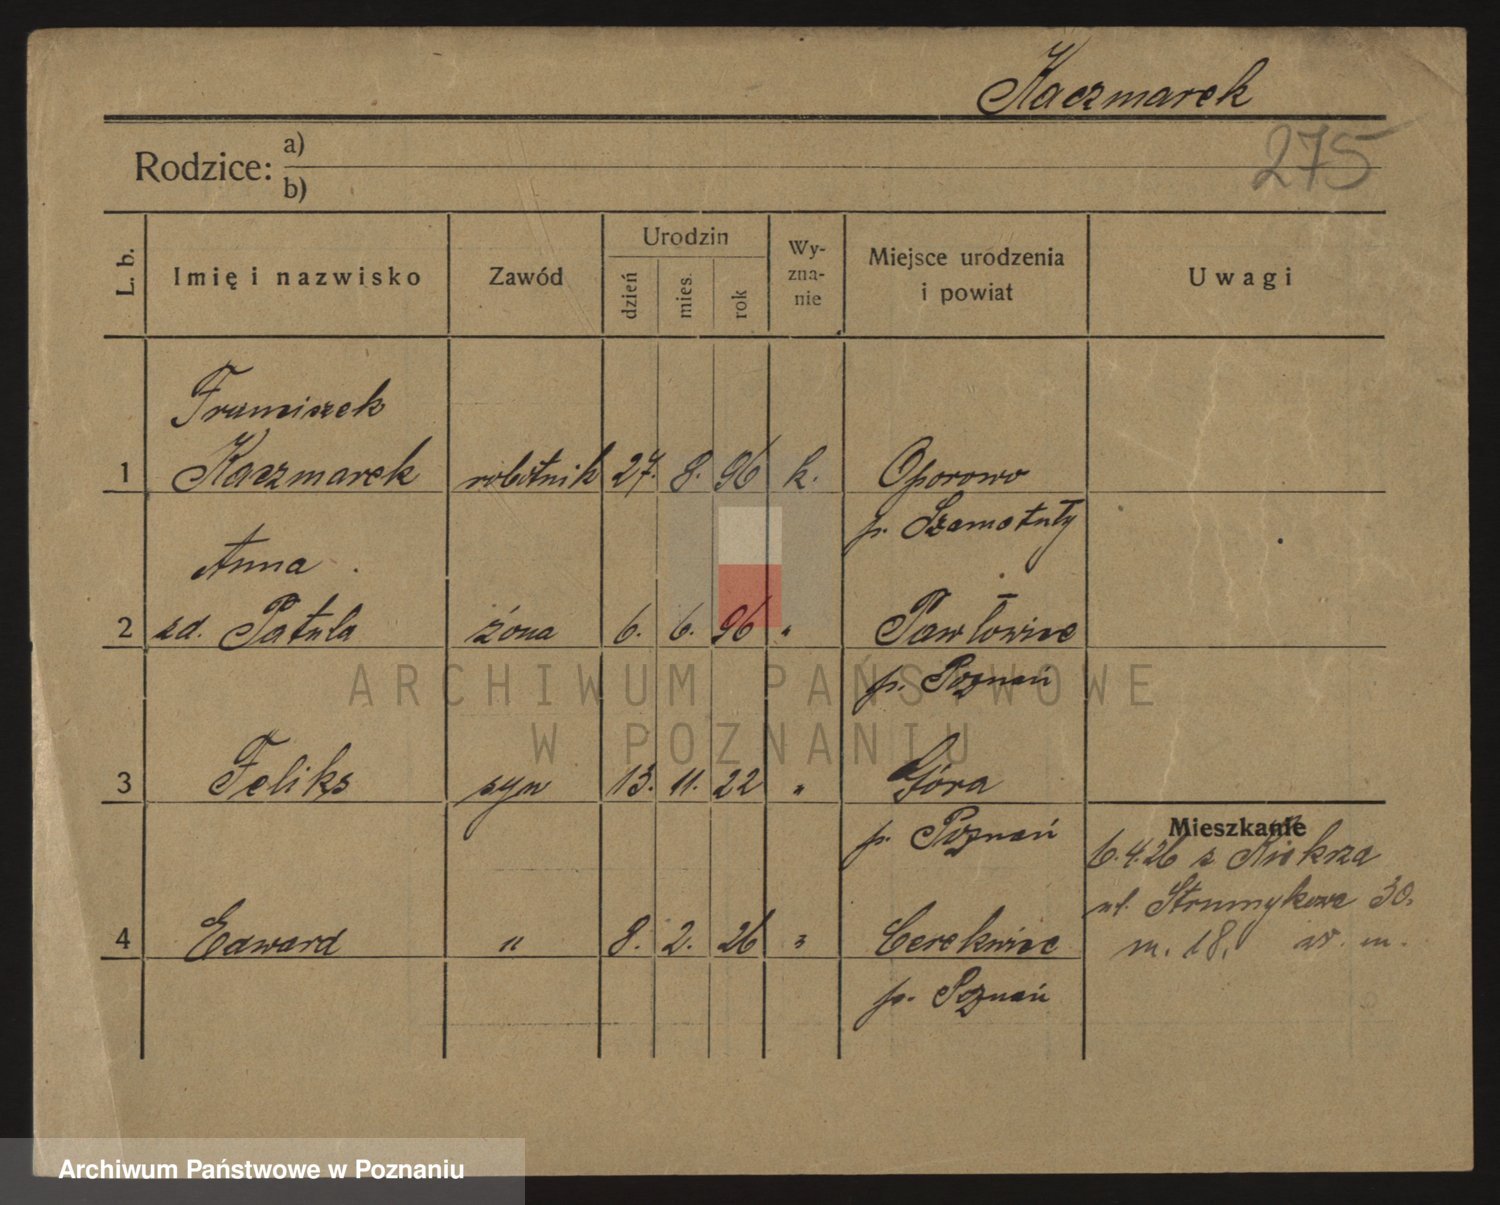 Kaczmarek
275
Rodzice: a)
b)
L. b.
Imię i nazwisko
Zawód
Urodzin
dzień
mies.
rok
Wy-
zna-
nie
Miejsce urodzenia
i powiat
Uwagi
Franciszek
1 Kaczmarek robotnik 27. 8. 96 k. Oporowo
p. Szamotuły
Anna
2 zd. Patula żona 6. 6. 96 " Pawłowice
p. Poznań
3 Feliks syn 13. 11. 22 " Góra
p. Poznań
Mieszkanie
6.4.26 z Kiekrza
ul. Strumykowa 30.
m. 18. w. m.
4 Edward " 8. 2. 26 " Cerekwice
p. Poznań
ARCHIWUM PAŃSTWOWE
W POZNANIU
Archiwum Państwowe w Poznaniu